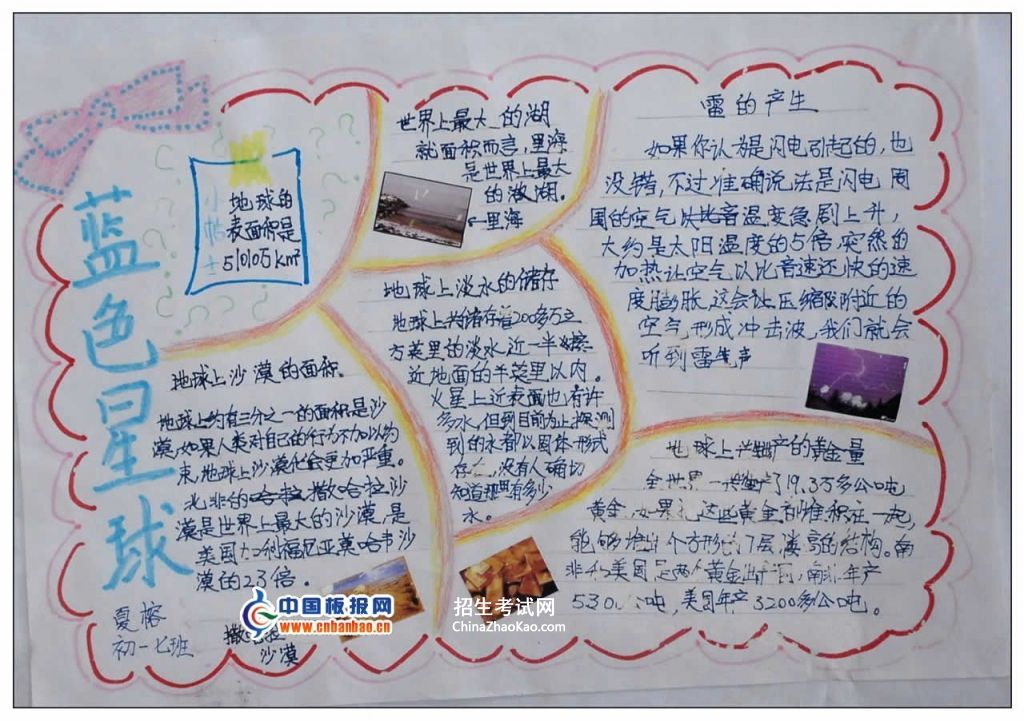 蓝色星球
小帖士
地球的
表面积是
51005km²
世界上最大的湖
就面积而言,里海
是世界上最大
的湖。
←里海
雷的产生
如果你认为是闪电引起的,也
没错,不过准确说法是闪电周
围的空气温度急剧上升,
大约是太阳温度的5倍,突然的
加热让空气以比音速还快的速
度膨胀,这会让压缩附近的
空气,形成冲击波,我们就会
听到雷声
地球上淡水的储存
地球上共储存着200多万立
方英里的淡水,近一半
近地面的半英里以内。
火星上近表面也有许
多水,但到目前为止,探测
到的水都以固体形式
存在,没有人确切
知道那里有多少
水。
地球上沙漠的面积。
地球上约有三分之一的面积是沙
漠,如果人类对自己的行为不加以约
束,地球上沙漠化会更加严重。
北非的撒哈拉沙
漠是世界上最大的沙漠,是
美国加利福尼亚莫哈韦沙
漠的23倍。
地球上共产的黄金量
全世界一共 了19.3万多公吨
黄金,如果把这些黄金都堆积在一起,
能够堆出个方形的7层楼高的结构。南
非和美国是两个黄金出产国,南非年产
530 公吨,美国年产3200多公吨。
夏榕
初一七班
撒哈拉
沙漠
中国板报网
www.cnbanbao.cn
招生考试网
ChinaZhaoKao.com